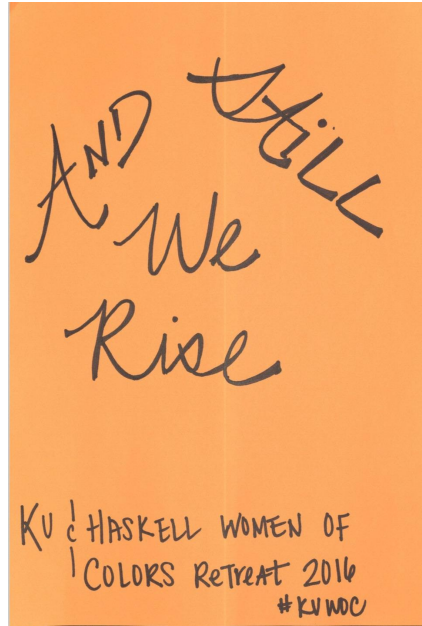 AND STiLL
We
Rise
KU & HASKELL WOMEN OF
COLORS ReTReAT 2016
#KUWOC